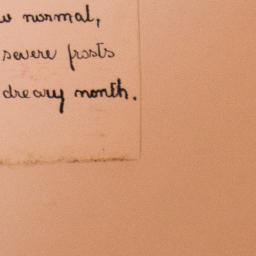 normal,
severe frosts
dreary month.